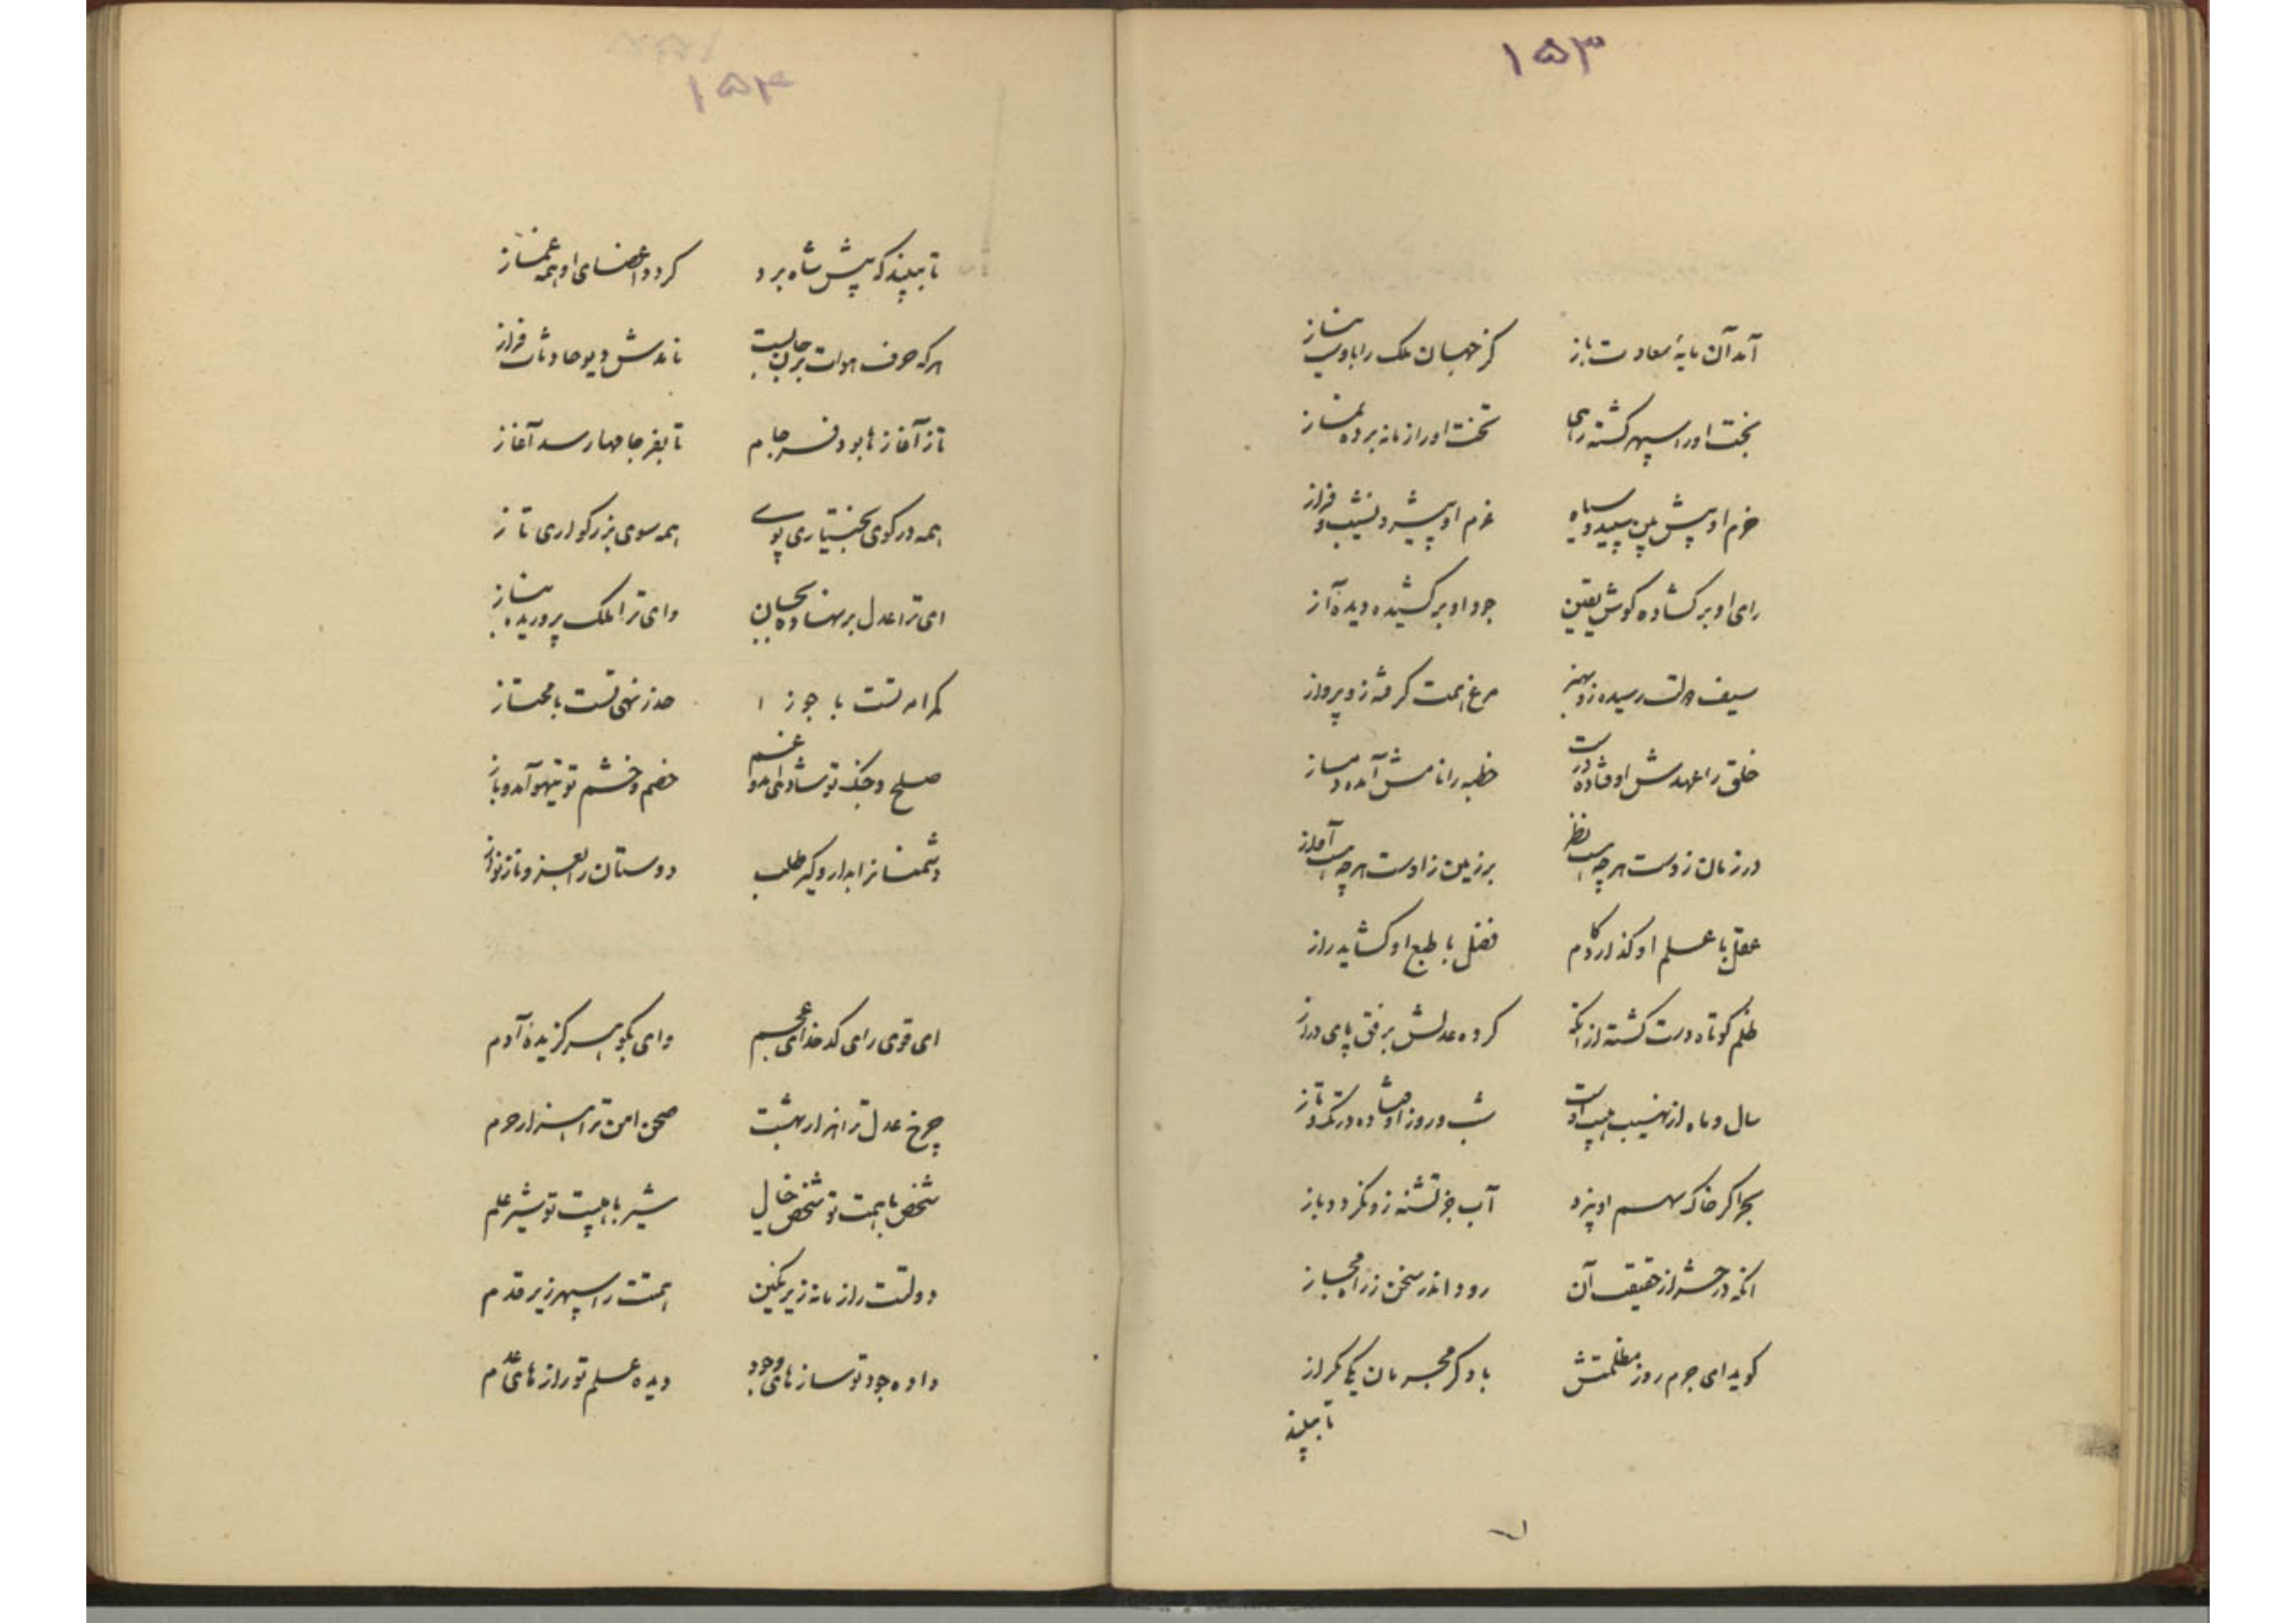 ۱۵۳
آمد آن مایهٔ سعادت باز کز جهان ملک را بدوست نیاز
بخت او را سپهر کشته رهی تخت او را زمانه برده نماز
حزم او پیش بین سپید و سیاه عزم او پیشرو نشیب و فراز
رای او برکشاده کوش یقین جود او برکشیده دیده آز
سیف دولت رسیده زو بهنر مرغ همت کرفته زو پرواز
خلق را عهدش اوفتاده درست خطبه را نامش آمده دمساز
در زمان زوست هرچه هست نظر بر زمین زاوست هرچه هست آواز
عقل با علم او کذارد کام فضل با طبع او کشاید راز
ظلم کوتاه دست کشته از آنکه کرده عدلش برفق پای دراز
سال و ماه از نهیب هیبت اوست شب و روز اوفتاده در تک و تاز
بحر اکر خاک سهم او پزد آب جز تشنه زو نکردد باز
آنکه در حشر از حقیقت آن رود اندر سخن ز راه مجاز
کوید ای جرم روز مظلمتش با دکر مجرمان یکی مکراز
تا ببیند
۱۵۴
تا ببیند که پیش شاه برد کردد اعضای او همه غماز
هرکه حرف هوات بر جان بست ناندش دیو حادثات فراز
تا ز آغازها بود فرجام تا بفرجامها رسد آغاز
همه در کوی بختیاری پوی همه سوی بزرکواری تاز
ای ترا عدل برنهاده بجان وای ترا ملک پروریده بناز
کر امر تست با جوزا حذر نهی تست با محتاز
صلح و جنک تو شادی آمد و غم خصم و خشم تو تیهو آمد و باز
دشمنانرا بدار و کیر طلب دوستان را بعز و ناز نواز
ای قوی رای کدخدای عجم وای نکو سیر کزیدهٔ آدم
چرخ عدل ترا هزار بهشت صحن امن ترا هزار حرم
شخص با همت تو شخص خیال شیر با هیبت تو شیر علم
دولتت را زمانه زیر نکین همتت را سپهر زیر قدم
داده جود تو سازهای وجود دیده علم تو رازهای عدم